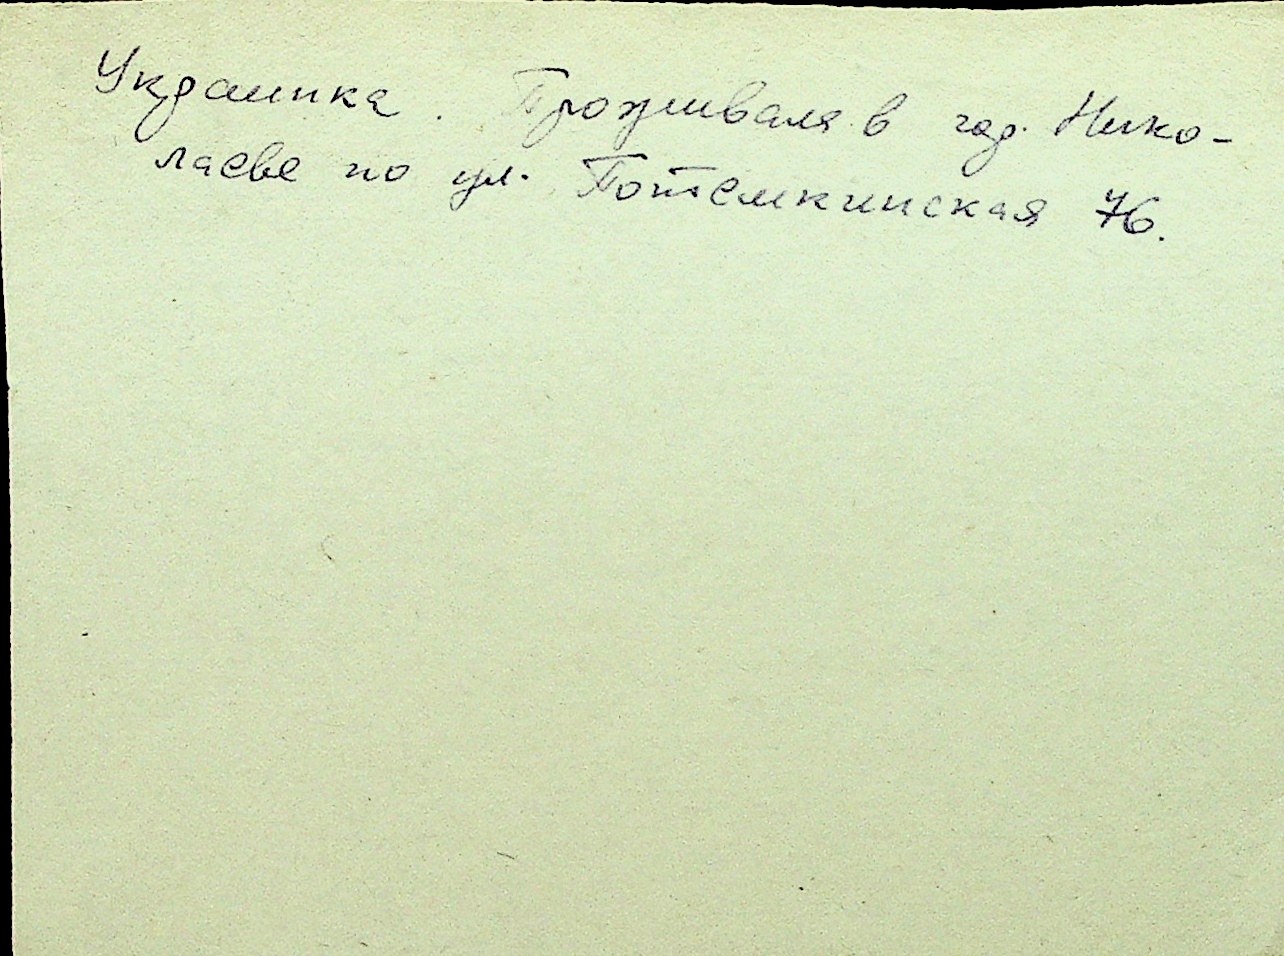 Украинка. Проживала в гор. Нико-
лаеве по ул. Потемкинская 76.